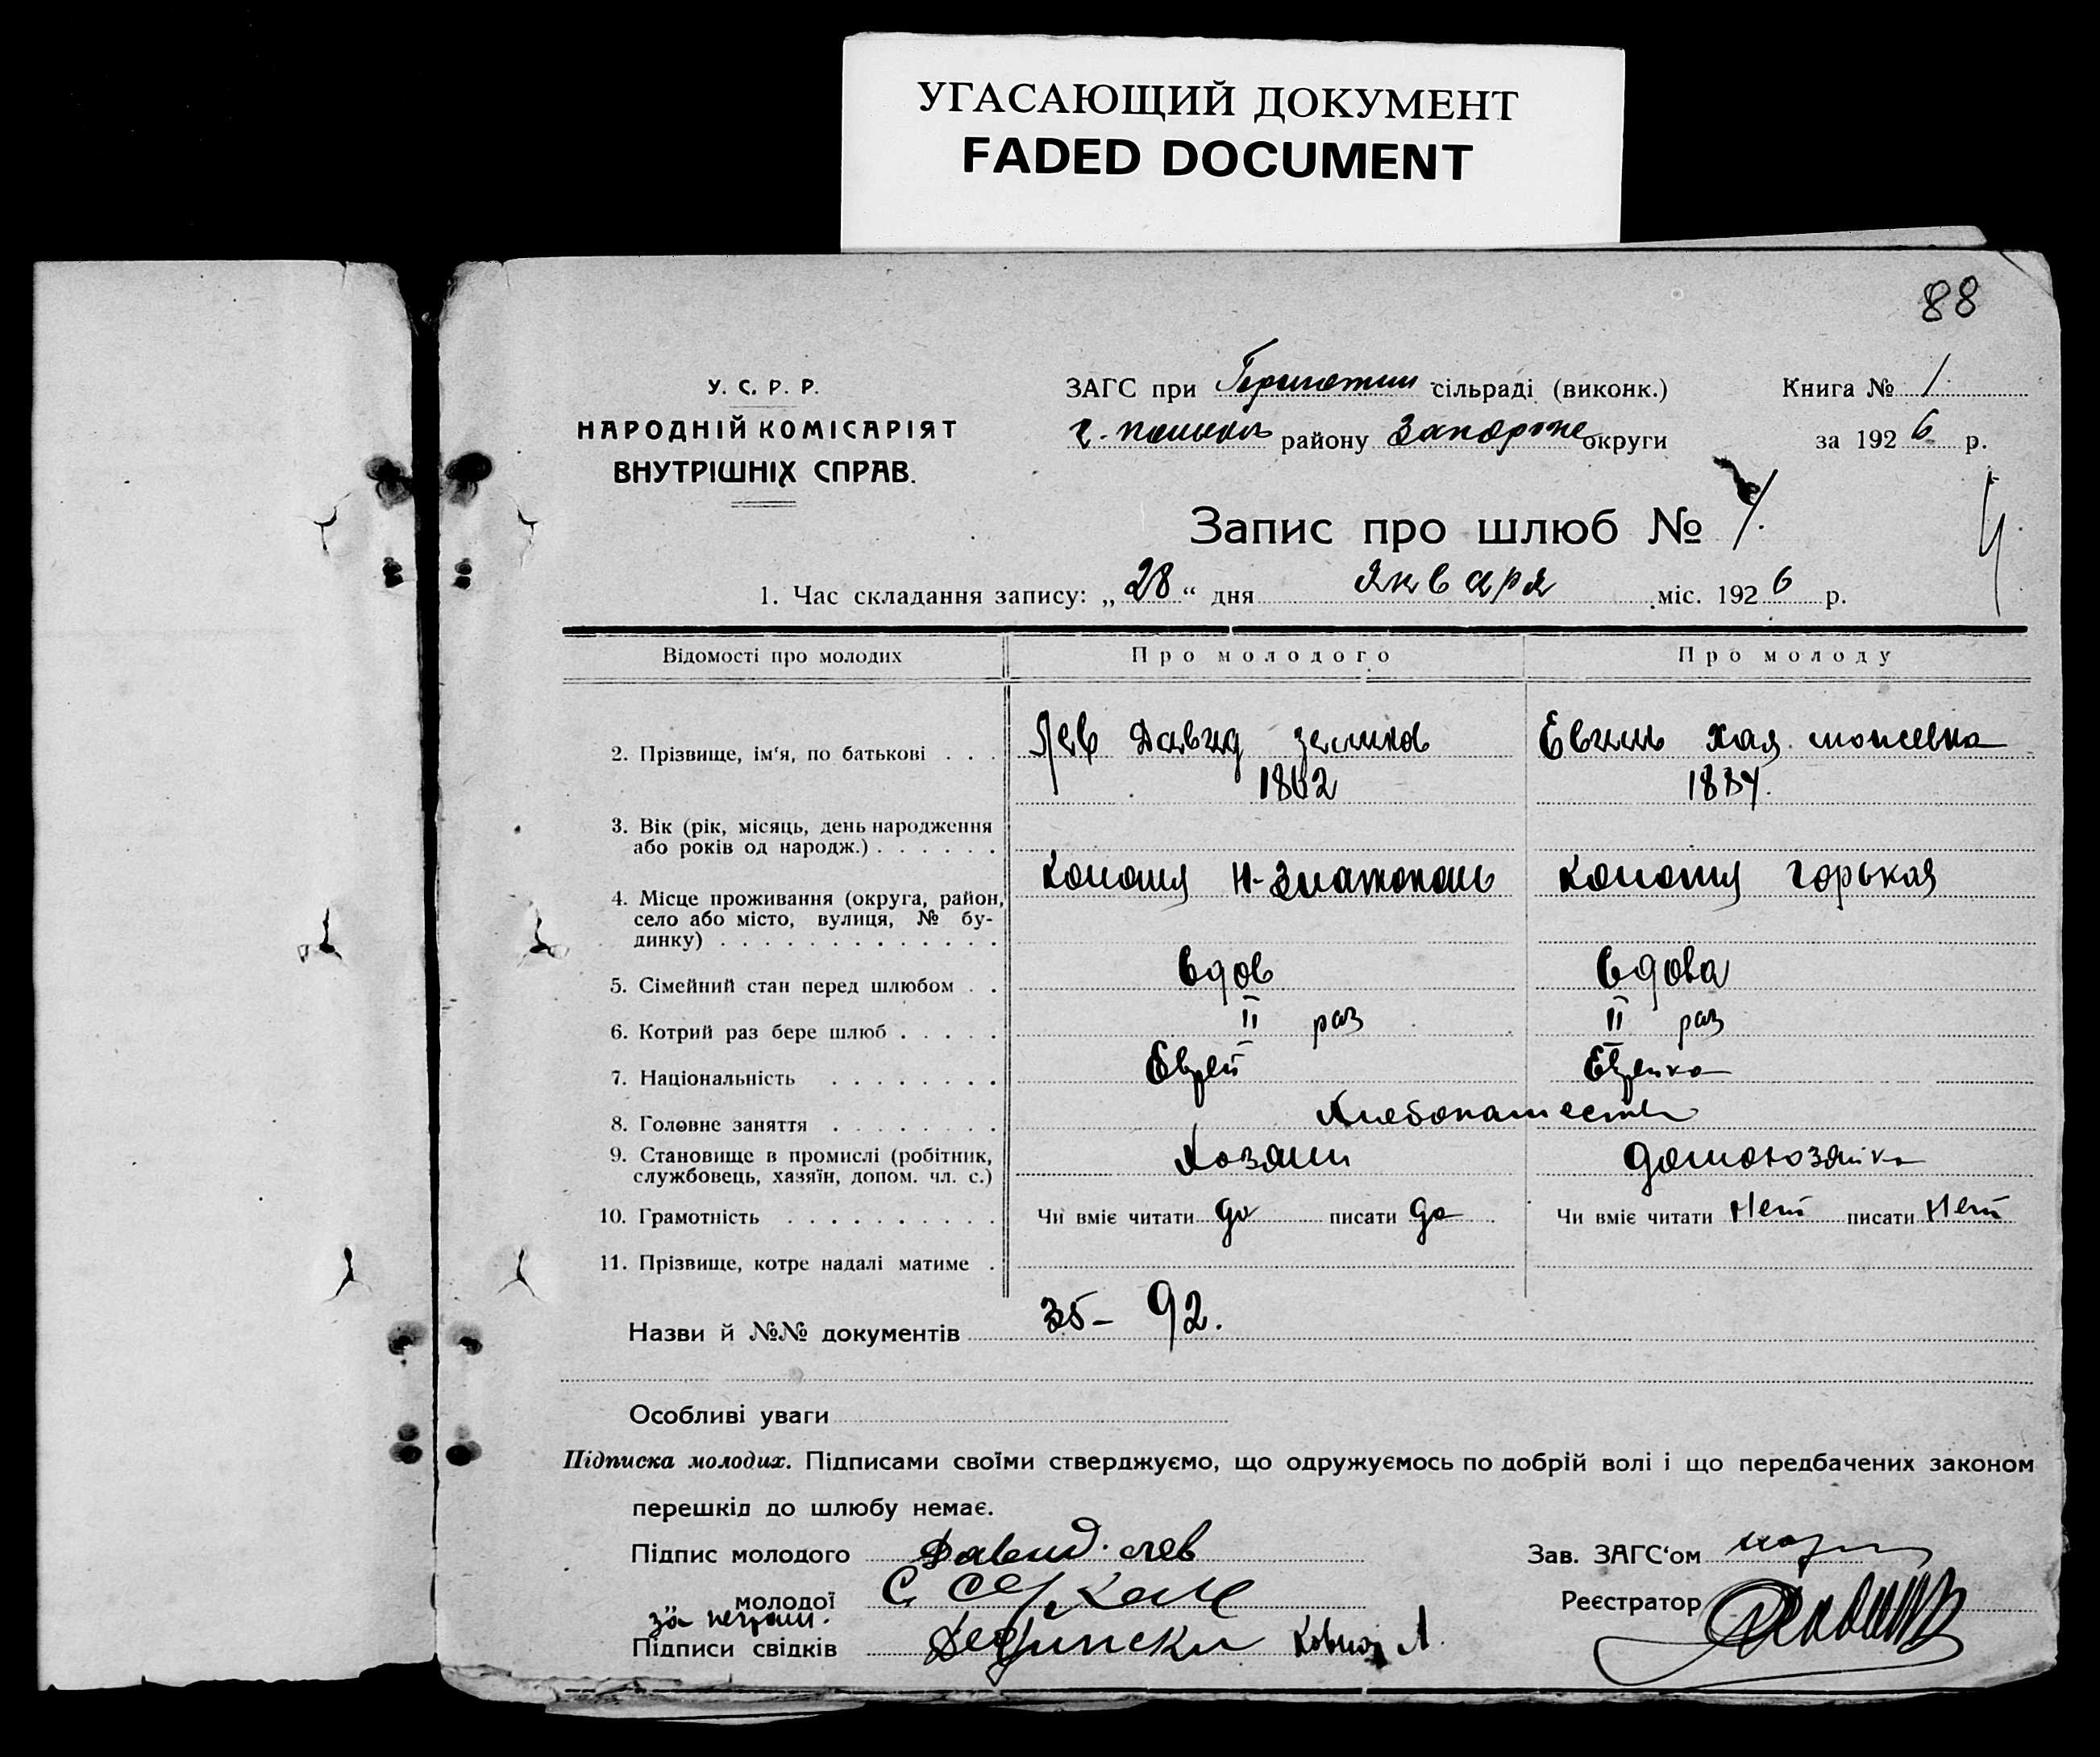 УГАСАЮЩИЙ ДОКУМЕНТ
FADED DOCUMENT
88
У. С. Р. Р.
НАРОДНІЙ КОМІСАРІЯТ
ВНУТРІШНІХ СПРАВ.
ЗАГС при сільраді (виконк.)
району Запорож округи
Книга № 1.
за 1926 р.
Запис про шлюб №
1. Час складання запису: „28“ дня Января міс. 1926 р.
Відомості про молодих Про молодого Про молоду
2. Прізвище, ім'я, по батькові . . . Лев Давид Евинь Хая моисевна
18 18
3. Вік (рік, місяць, день народження
або років од народж.) . . . . . .
4. Місце проживання (округа, район, колония Н-Златополь колония горькая
село або місто, вулиця, № бу-
динку) . . . . . . . . . . . . .
5. Сімейний стан перед шлюбом . . вдов вдова
6. Котрий раз бере шлюб . . . . . II раз II раз
7. Національність . . . . . . . . Еврей Еврейка
8. Головне заняття . . . . . . . . Хлебопашество
9. Становище в промислі (робітник, Хозяин домохозяйка
службовець, хазяїн, допом. чл. с.)
10. Грамотність . . . . . . . . . . Чи вміє читати да писати да Чи вміє читати Нет писати Нет
11. Прізвище, котре надалі матиме .
Назви й №№ документів 35 - 92.
Особливі уваги
Підписка молодих. Підписами своїми стверджуємо, що одружуємось по добрій волі і що передбачених законом
перешкід до шлюбу немає.
Підпис молодого Давид лев
Зав. ЗАГС'ом
„ молодої
Реєстратор
за неграм.
Підписи свідків